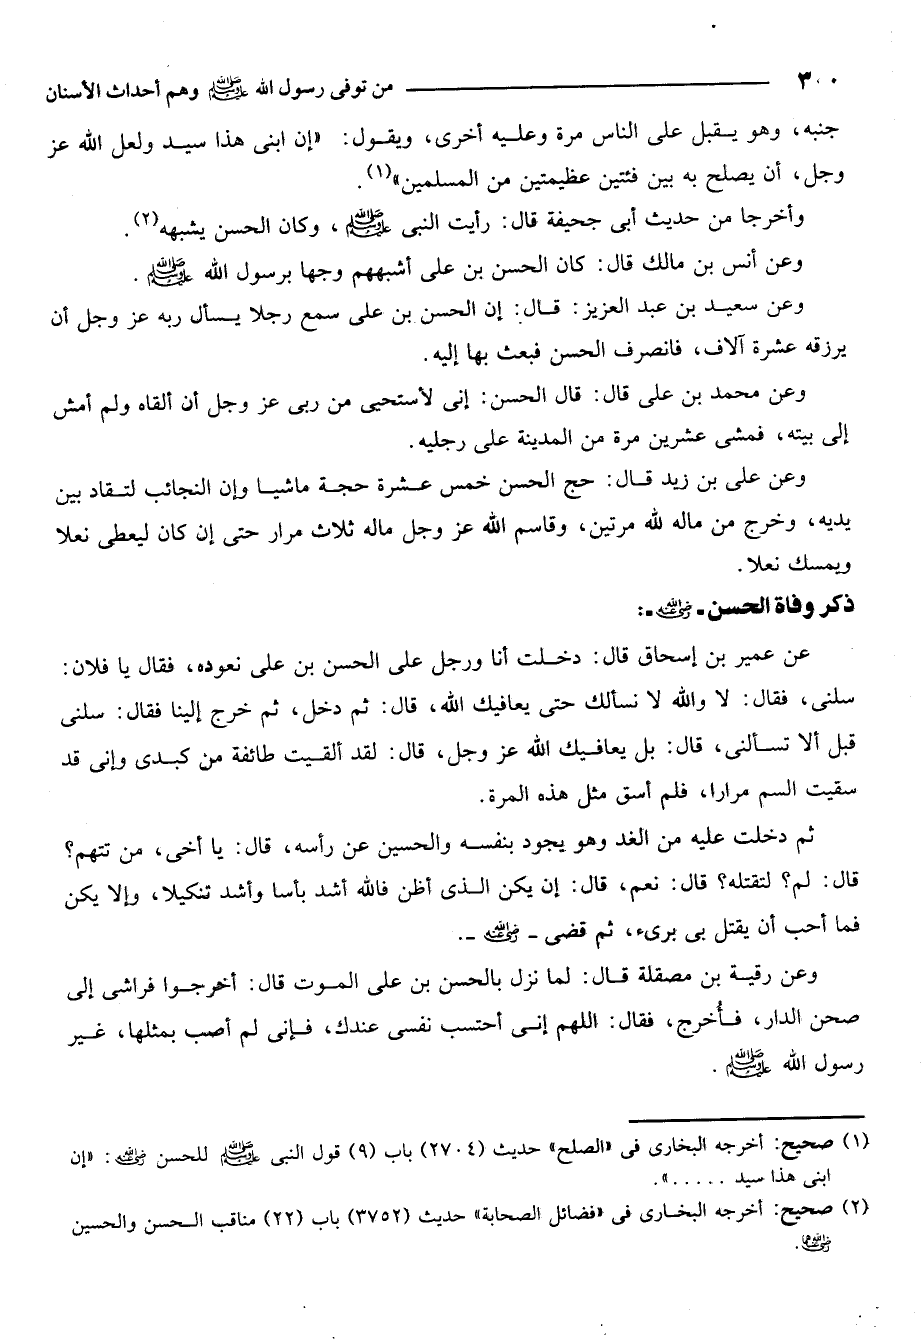 ٣٠٠ من توفى رسول الله ﷺ وهم أحداث الأسنان
جنبه، وهو يقبل على الناس مرة وعليه أخرى، ويقول: «إن ابنى هذا سيد ولعل الله عز
وجل، أن يصلح به بين فئتين عظيمتين من المسلمين»(١).
وأخرجا من حديث أبى جحيفة قال: رأيت النبى ﷺ، وكان الحسن يشبهه(٢).
وعن أنس بن مالك قال: كان الحسن بن على أشبههم وجها برسول الله ﷺ.
وعن سعيد بن عبد العزيز: قال: إن الحسن بن على سمع رجلا يسأل ربه عز وجل أن
يرزقه عشرة آلاف، فانصرف الحسن فبعث بها إليه.
وعن محمد بن على قال: قال الحسن: إنى لأستحيى من ربى عز وجل أن ألقاه ولم أمش
إلى بيته، فمشى عشرين مرة من المدينة على رجليه.
وعن على بن زيد قال: حج الحسن خمس عشرة حجة ماشيا وإن النجائب لتقاد بين
يديه، وخرج من ماله لله مرتين، وقاسم الله عز وجل ماله ثلاث مرار حتى إن كان ليعطى نعلا
ويمسك نعلا.
ذكر وفاة الحسن - رضي الله عنه -:
عن عمير بن إسحاق قال: دخلت أنا ورجل على الحسن بن على نعوده، فقال يا فلان:
سلنى، فقال: لا والله لا نسألك حتى يعافيك الله، قال: ثم دخل، ثم خرج إلينا فقال: سلنى
قبل ألا تسألنى، قال: بل يعافيك الله عز وجل، قال: لقد ألقيت طائفة من كبدى وإنى قد
سقيت السم مرارا، فلم أسق مثل هذه المرة.
ثم دخلت عليه من الغد وهو يجود بنفسه والحسين عن رأسه، قال: يا أخى، من تتهم؟
قال: لم؟ لتقتله؟ قال: نعم، قال: إن يكن الذى أظن فالله أشد بأسا وأشد تنكيلا، وإلا يكن
فما أحب أن يقتل بى برىء، ثم قضى - رضي الله عنه -.
وعن رقية بن مصقلة قال: لما نزل بالحسن بن على الموت قال: أخرجوا فراشى إلى
صحن الدار، فأُخرج، فقال: اللهم إنى أحتسب نفسى عندك، فإنى لم أصب بمثلها، غير
رسول الله ﷺ.
(١) صحيح: أخرجه البخارى فى «الصلح» حديث (٢٧٠٤) باب (٩) قول النبى ﷺ للحسن رضي الله عنه: «إن
ابنى هذا سيد .....».
(٢) صحيح: أخرجه البخارى فى «فضائل الصحابة» حديث (٣٧٥٢) باب (٢٢) مناقب الحسن والحسين
رضي الله عنهما.